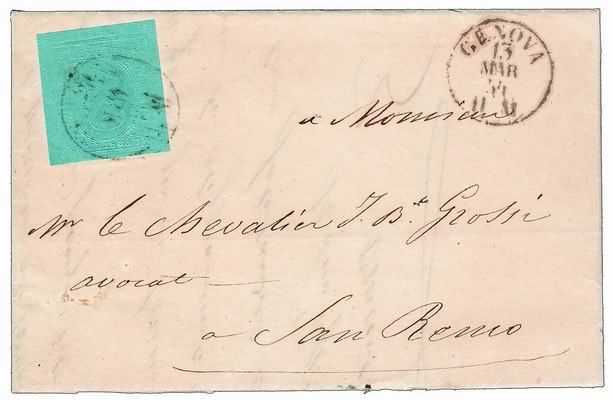 GENOVA
13
MAR
54
a Monsieur
Mr le Chevalier J. Bt. Grossi
avocat
a San Remo